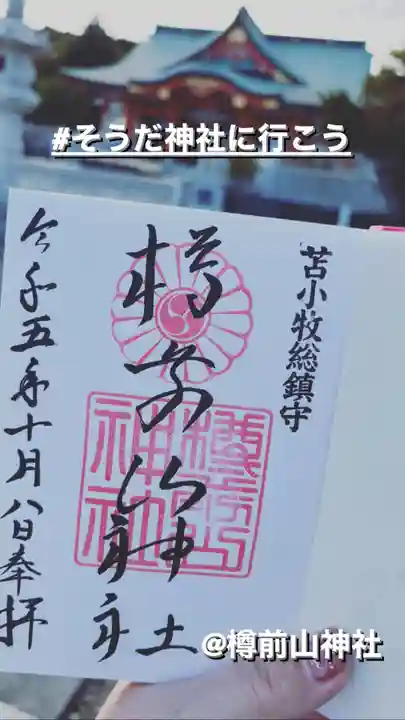 #そうだ神社に行こう
苫小牧総鎮守
樽前山神社
令和五年十月八日奉拝
樽前山神社
@樽前山神社